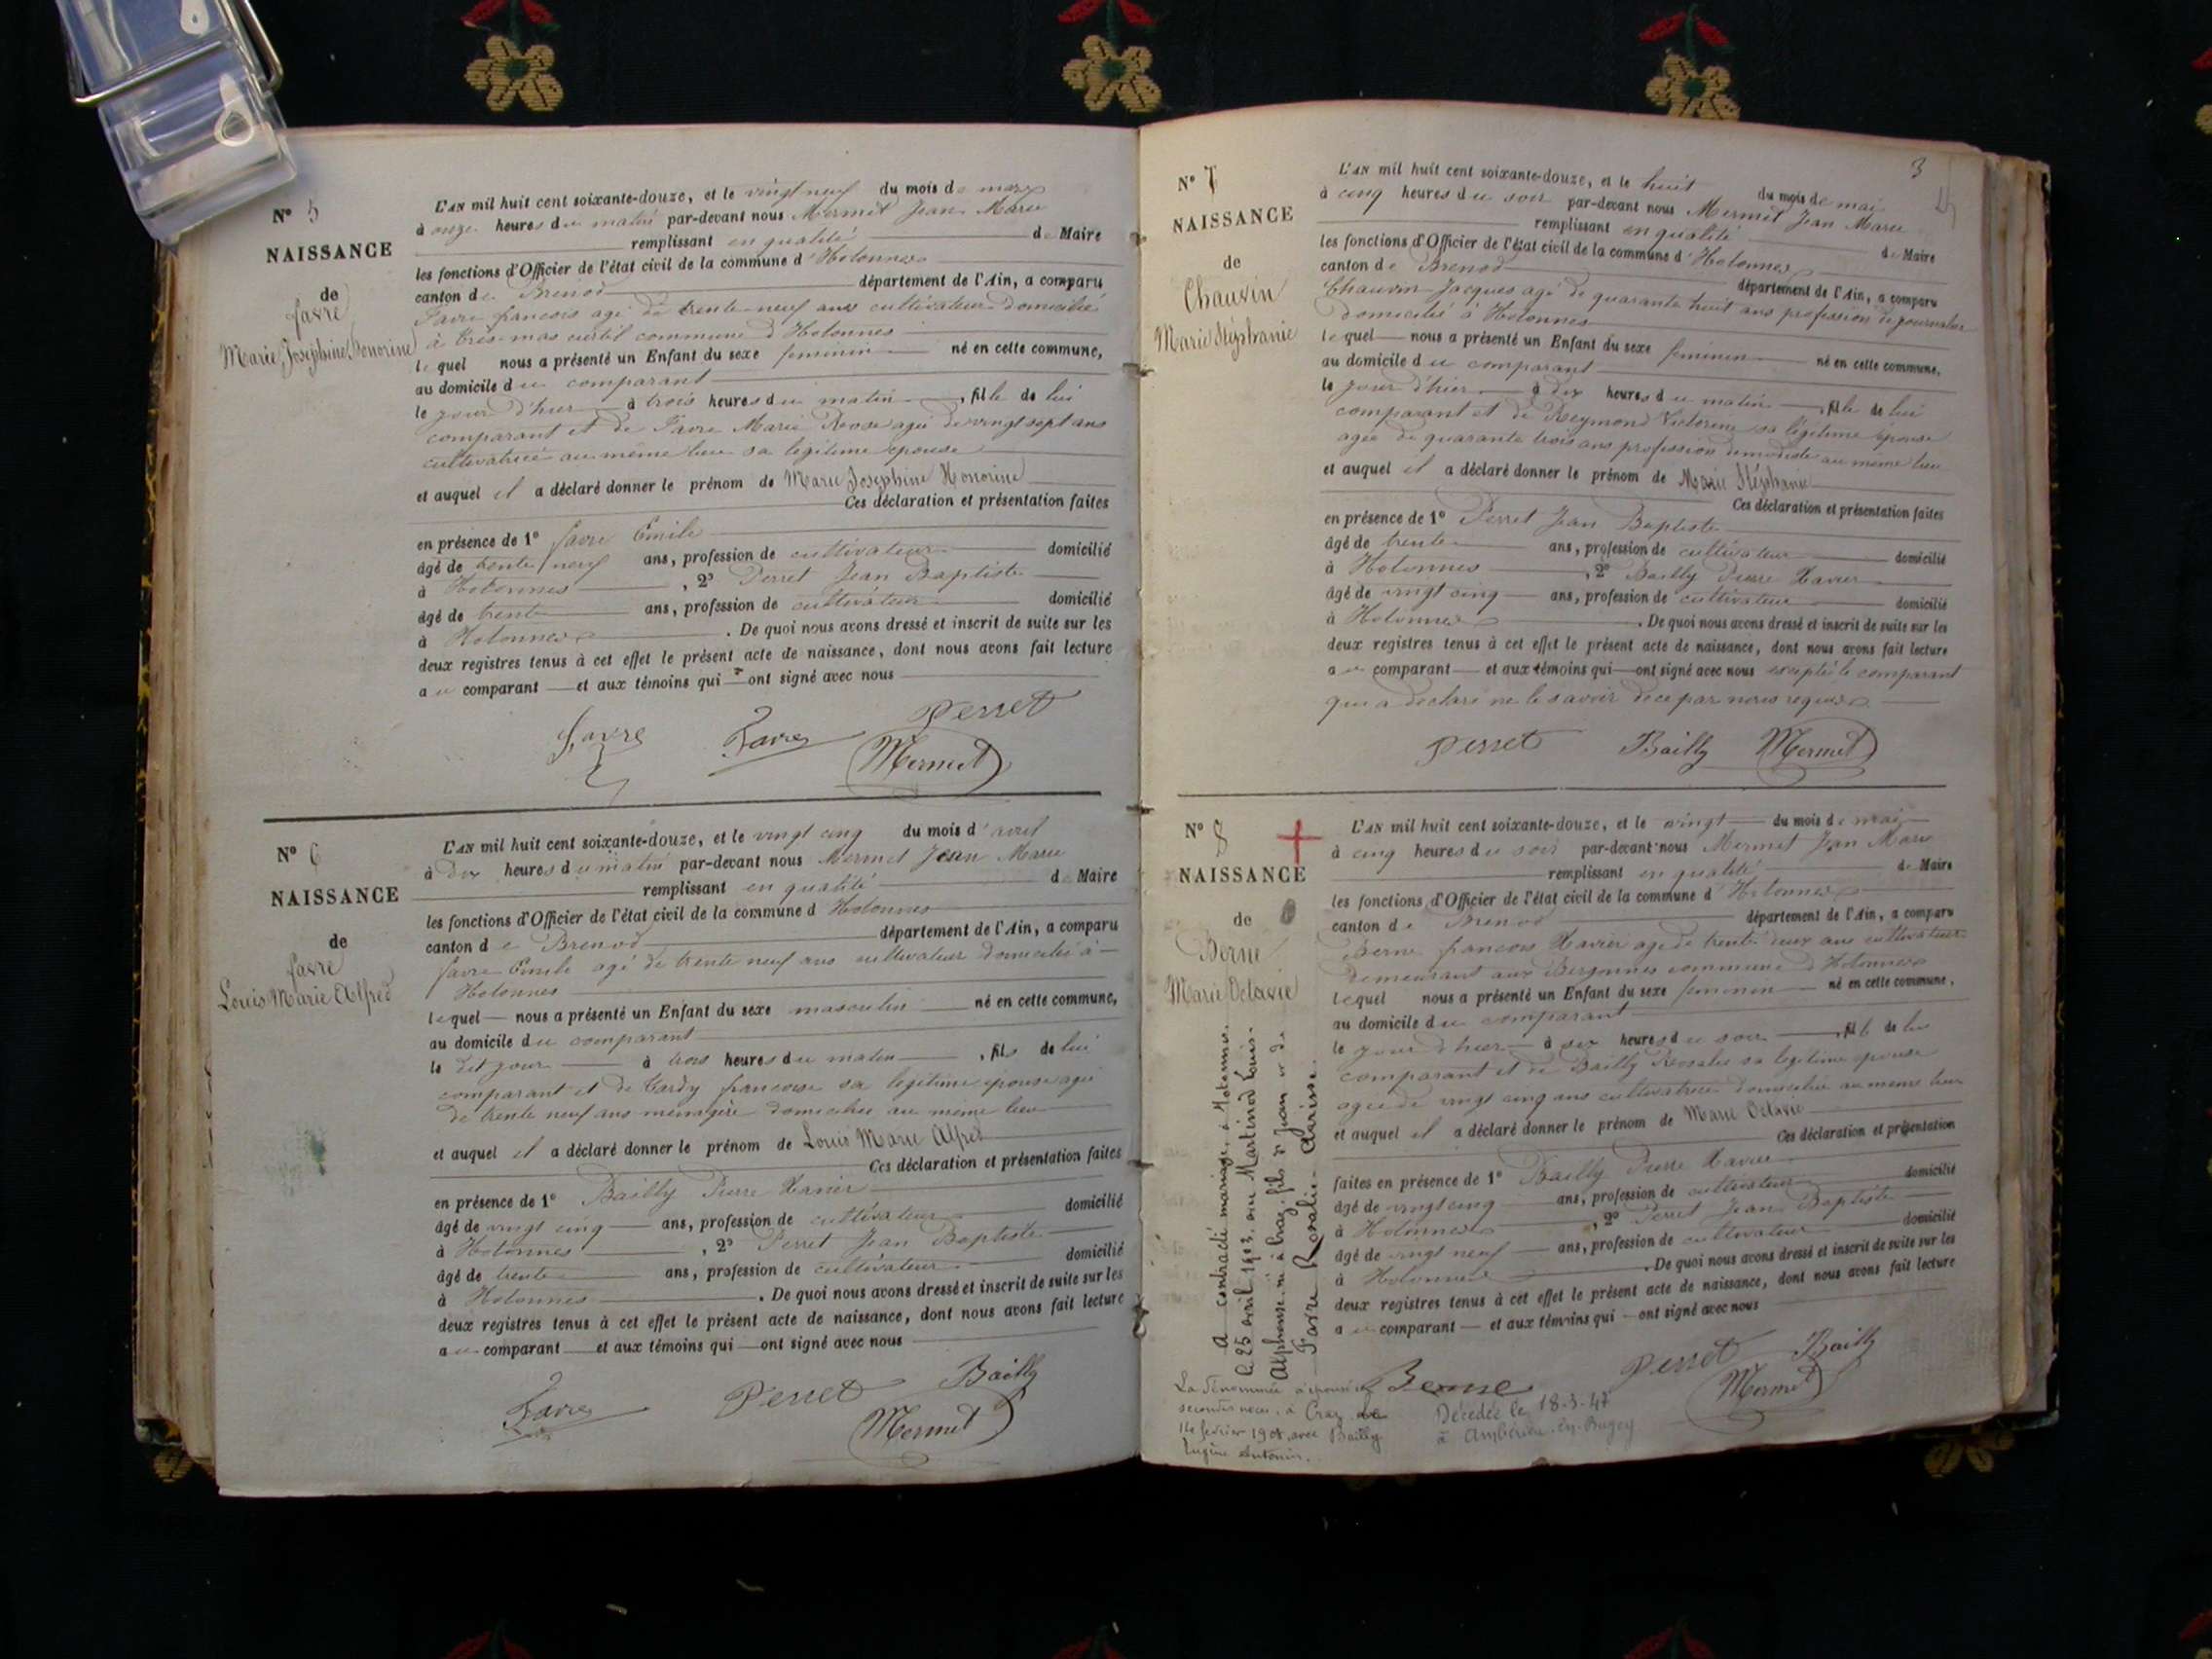 N° 5
NAISSANCE
de
favre
Marie Joséphine Honorine
L'AN mil huit cent soixante-douze, et le vingt neuf du mois de mars
à onze heures du matin par-devant nous Mermet Jean Marie
remplissant en qualité de Maire
les fonctions d'Officier de l'état civil de la commune d'Hotonnes
canton de Brenod département de l'Ain, a comparu
Favre francois agé de trente-neuf ans cultivateur domicilié
à commune d'Hotonnes
lequel nous a présenté un Enfant du sexe feminin né en cette commune,
au domicile du comparant
le jour d'hier à trois heures du matin, fille de lui
comparant et de Favre Marie Rose agée de vingt sept ans
cultivatrice au même lieu sa légitime épouse
et auquel il a déclaré donner le prénom de Marie Josephine Honorine
Ces déclaration et présentation faites
en présence de 1° favre Emile
âgé de trente neuf ans, profession de cultivateur domicilié
à Hotonnes, 2° Perret Jean Baptiste
âgé de trente ans, profession de cultivateur domicilié
à Hotonnes. De quoi nous avons dressé et inscrit de suite sur les
deux registres tenus à cet effet le présent acte de naissance, dont nous avons fait lecture
au comparant et aux témoins qui ont signé avec nous
favre Favre Perret
Mermet
N° 6
NAISSANCE
de
favre
Louis Marie Alfred
L'AN mil huit cent soixante-douze, et le vingt cinq du mois d'avril
à dix heures du matin par-devant nous Mermet Jean Marie
remplissant en qualité de Maire
les fonctions d'Officier de l'état civil de la commune d Hotonnes
canton de Brenod département de l'Ain, a comparu
favre Emile agé de trente neuf ans cultivateur domicilié à
Hotonnes
lequel nous a présenté un Enfant du sexe masculin né en cette commune,
au domicile du comparant
le dit jour à trois heures du matin, fils de lui
comparant et de Tardy francoise sa légitime épouse agée
de trente neuf ans ménagère domiciliée au même lieu
et auquel il a déclaré donner le prénom de Louis Marie Alfred
Ces déclaration et présentation faites
en présence de 1° Bailly Pierre Xavier
âgé de vingt cinq ans, profession de cultivateur domicilié
à Hotonnes, 2° Perret Jean Baptiste
âgé de trente ans, profession de cultivateur domicilié
à Hotonnes. De quoi nous avons dressé et inscrit de suite sur les
deux registres tenus à cet effet le présent acte de naissance, dont nous avons fait lecture
au comparant et aux témoins qui ont signé avec nous
Favre Perret Bailly
Mermet
3
N° 7
NAISSANCE
de
Chauvin
Marie Stéphanie
L'AN mil huit cent soixante-douze, et le huit du mois de mai
à cinq heures du soir par-devant nous Mermet Jean Marie
remplissant en qualité de Maire
les fonctions d'Officier de l'état civil de la commune d'Hotonnes
canton de Brenod département de l'Ain, a comparu
Chauvin Jacques agé de quarante huit ans profession de journalier
domicilié à Hotonnes
lequel nous a présenté un Enfant du sexe feminin né en cette commune,
au domicile du comparant
le jour d'hier à dix heures du matin, fille de lui
comparant et de Reymond Victorine sa légitime épouse
agée de quarante trois ans profession de modiste au même lieu
et auquel il a déclaré donner le prénom de Marie Stéphanie
Ces déclaration et présentation faites
en présence de 1° Perret Jean Baptiste
âgé de trente ans, profession de cultivateur domicilié
à Hotonnes, 2° Bailly Pierre Xavier
âgé de vingt cinq ans, profession de cultivateur domicilié
à Hotonnes. De quoi nous avons dressé et inscrit de suite sur les
deux registres tenus à cet effet le présent acte de naissance, dont nous avons fait lecture
au comparant et aux témoins qui ont signé avec nous excepté le comparant
qui a déclaré ne le savoir de ce par nous requis
Perret Bailly Mermet
N° 8
NAISSANCE
de
Berne
Marie Octavie
L'AN mil huit cent soixante-douze, et le vingt du mois de mai
à cinq heures du soir par-devant nous Mermet Jean Marie
remplissant en qualité de Maire
les fonctions d'Officier de l'état civil de la commune d'Hotonnes
canton de Brenod département de l'Ain, a comparu
Berne francois Xavier agé de trente deux ans cultivateur
demeurant aux Bergonnes commune d'Hotonnes
lequel nous a présenté un Enfant du sexe feminin né en cette commune,
au domicile du comparant
le jour d'hier à six heures du soir, fille de lui
comparant et de Bailly Rosalie sa légitime épouse
agée de vingt cinq ans cultivatrice domiciliée au même lieu
et auquel il a déclaré donner le prénom de Marie Octavie
Ces déclaration et présentation
faites en présence de 1° Bailly Pierre Xavier
âgé de vingt cinq ans, profession de cultivateur domicilié
à Hotonnes, 2° Perret Jean Baptiste
âgé de vingt neuf ans, profession de cultivateur domicilié
à Hotonnes. De quoi nous avons dressé et inscrit de suite sur les
deux registres tenus à cet effet le présent acte de naissance, dont nous avons fait lecture
au comparant et aux témoins qui ont signé avec nous
Berne Perret Bailly
Mermet
A contracté mariage, à Hotonnes.
le 25 avril 1903, avec Martinod Louis-
Alphonse, né à Craz, fils de Jean et de
Favre Rosalie-
La dénommée a épousé en
secondes noces, à Craz, le
14 février 1908, avec Bailly
Eugène Antonin.
Décédée le 18-3-47
à Ambérieu-en-Bugey